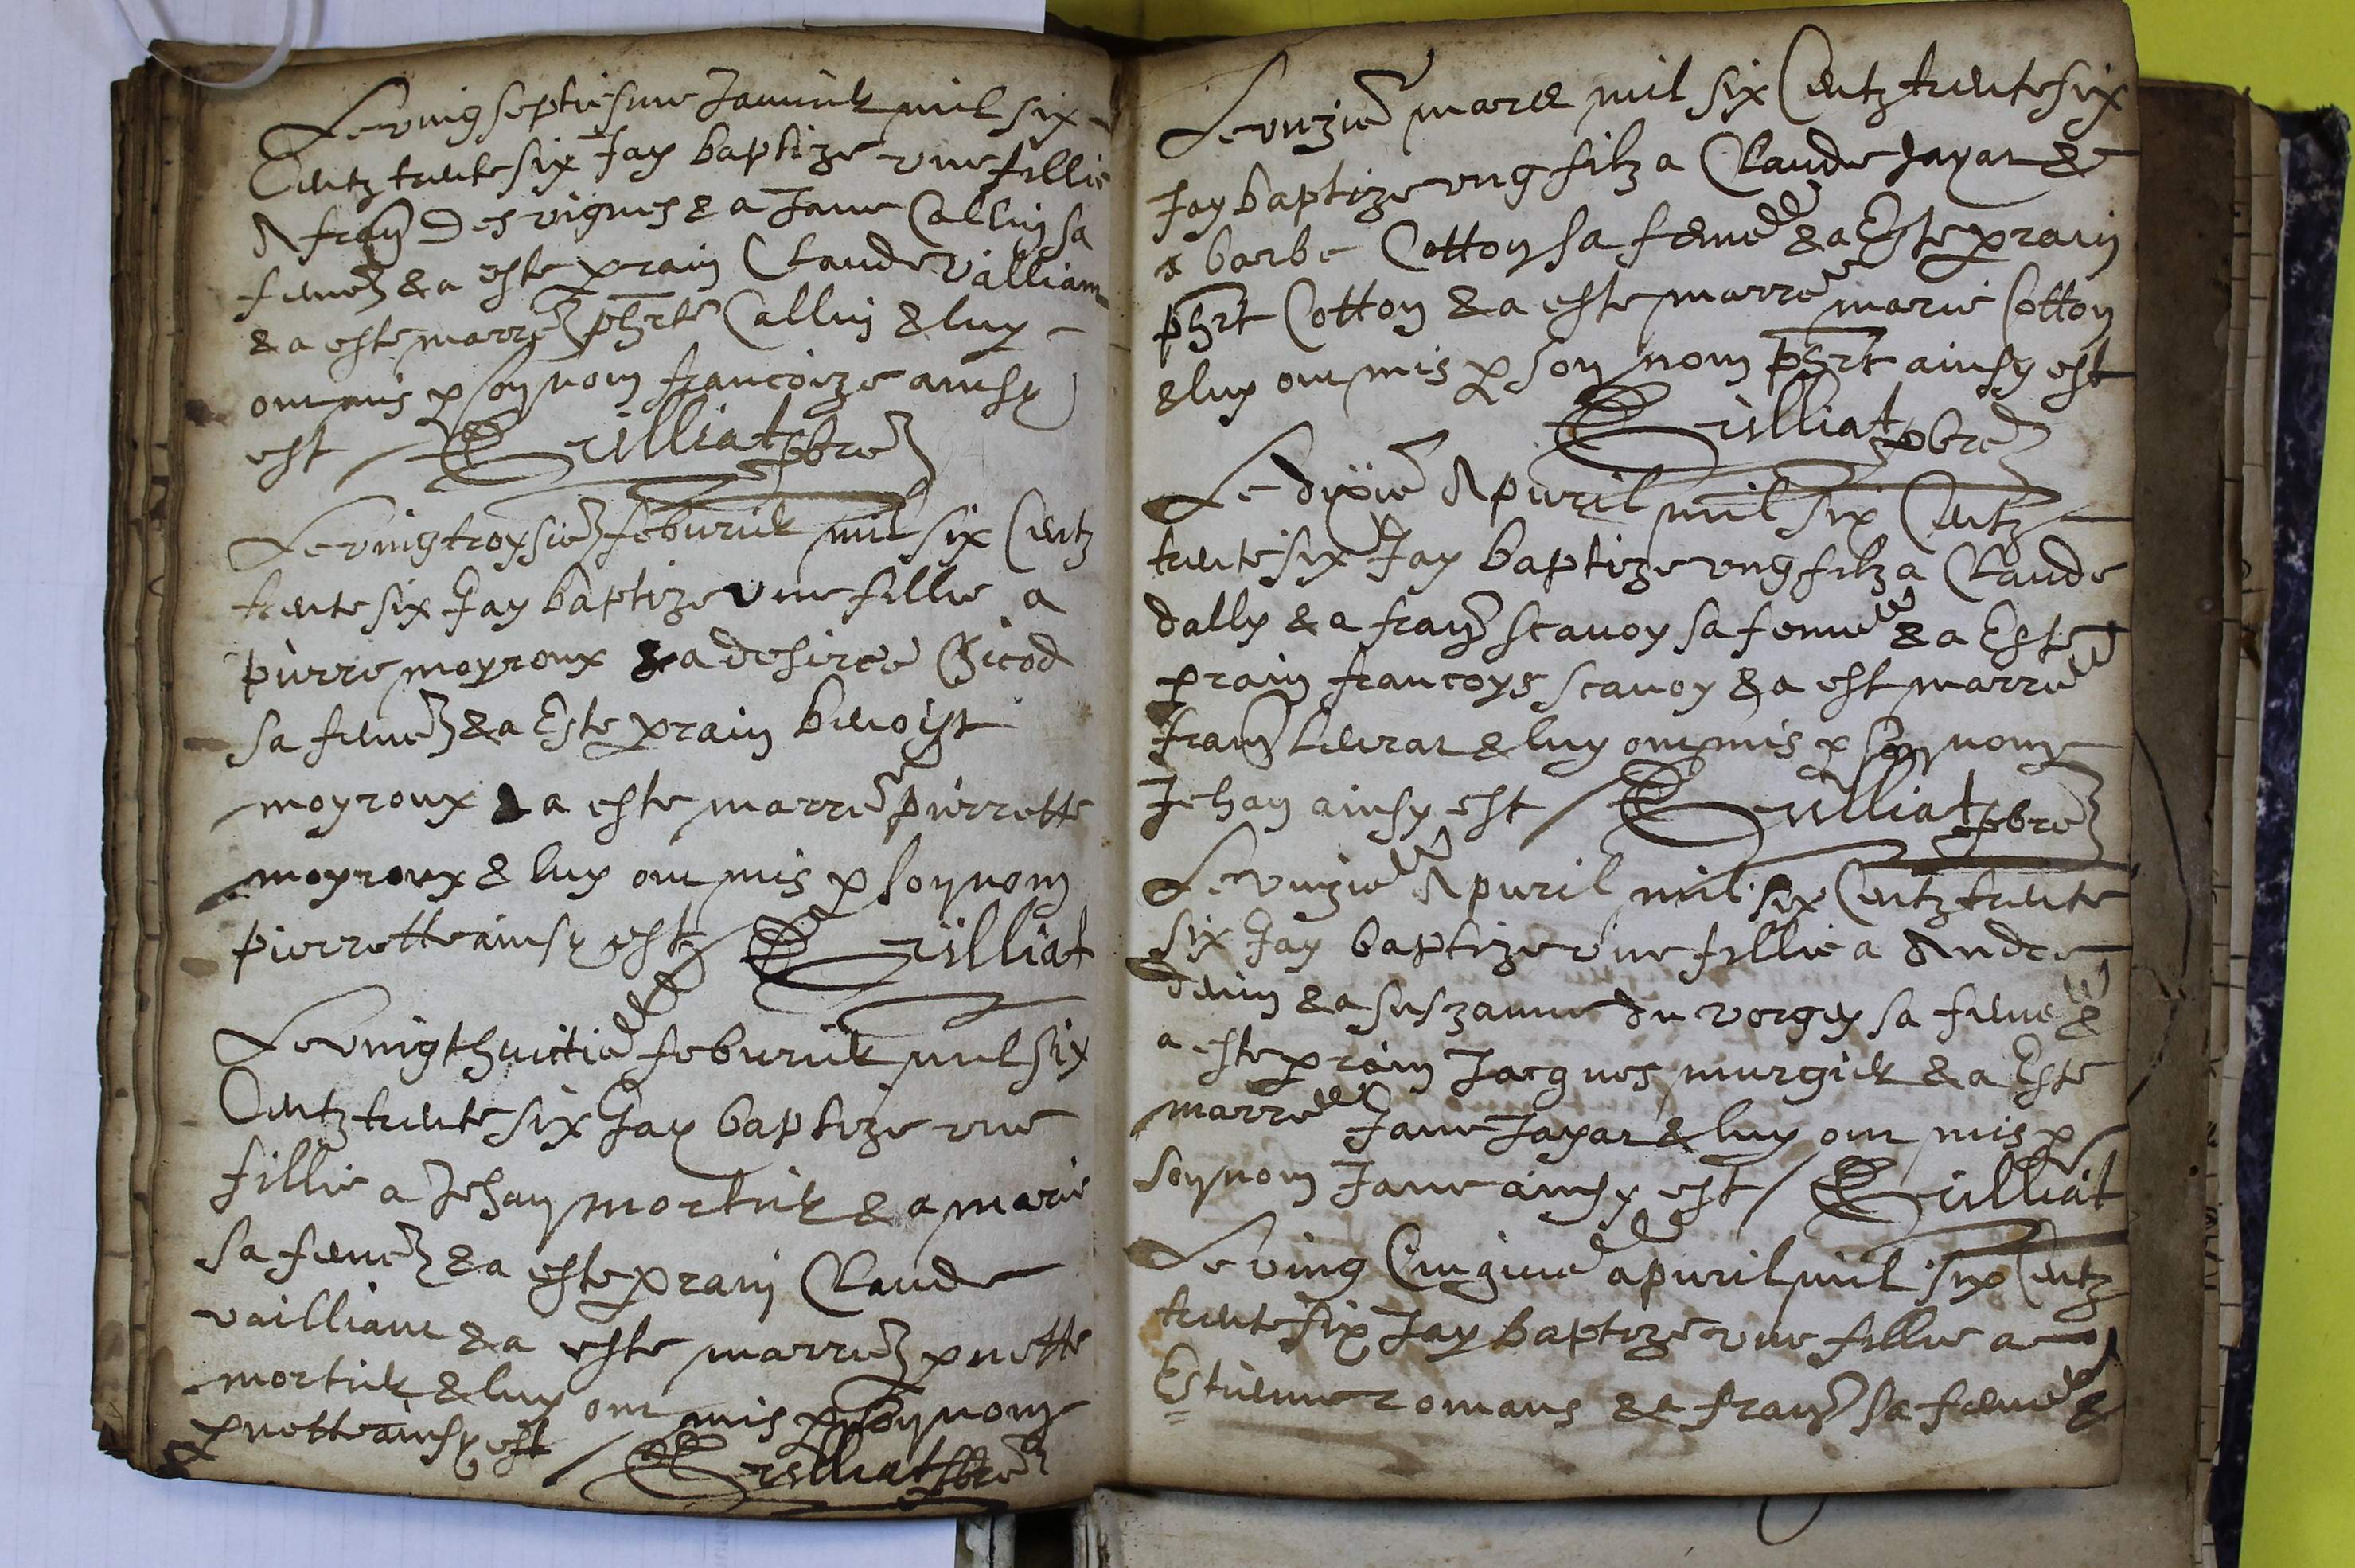 Le vingseptiesme Januier mil six
Centz trentesix Jay baptize vne fillie
A fran Des vignes & a Jane Callin sa
femme & a este prain Claude valliam
& a este marre phrte Callin & luy
ont mis p son nom francoize ainsy
est Grilliat pbre
Le vingtroysie feburier mil six Centz
trente six Jay baptize vne fillie a
pierre moyroux & a desiree Gicod
sa femme & a Este prain benoist
moyroux & a este marre pierrette
moyroux & luy ont mis p son nom
pierrette ainsy est Grilliat
Le vingthuictie feburier mil six
Centz trente six Jay baptize vne
fillie a Jehan mortier & a marie
sa femme & a este prain Claude
vailliant & a este marre pnette
mortier & luy ont mis p son nom
pnette ainsy est Grilliat pbre
Le vnzie mars mil six Centz trente six
Jay baptize vng filz a Claude Jayat &
a barbe Cotton sa femme & a Este prain
phrt Cotton & a este marre marie Cotton
& luy ont mis p son nom phrt ainsy est
Grilliat pbre
Le dixie Apuril mil six Centz
trente six Jay baptize vng filz a Claude
dally & a fran scauoy sa femme & a Este
prain francoys scauoy & a est marre
fran & luy ont mis p son nom
Jehan ainsy est Grilliat pbre
Le vnzie Apuril mil six Centz trente
six Jay baptize vne fillie a Andre
denin & a suszanne du vergey sa femme &
a este prain Jacques murgier & a Este
marre Jane Jayat & luy ont mis p
son nom Jane ainsy est Grilliat
Le ving Cinquie apuril mil six Centz
trente six Jay baptize vne fillie a
Estienne romans & a fran sa femme &